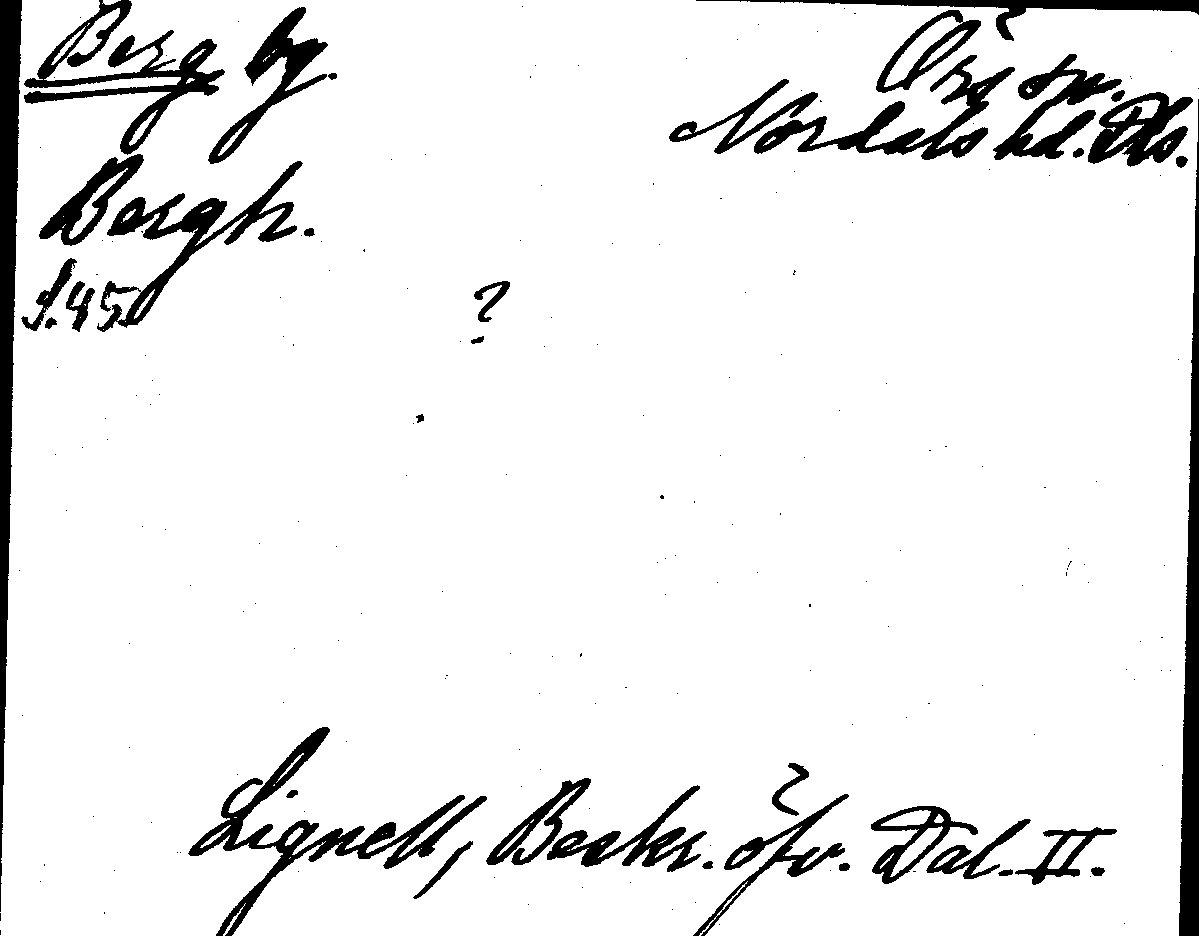 Berg by.
Örs sn.
Nordals hd. Dls.
Bergh.
S. 45
?
Lignell, Beskr. öfv. Dal. II.